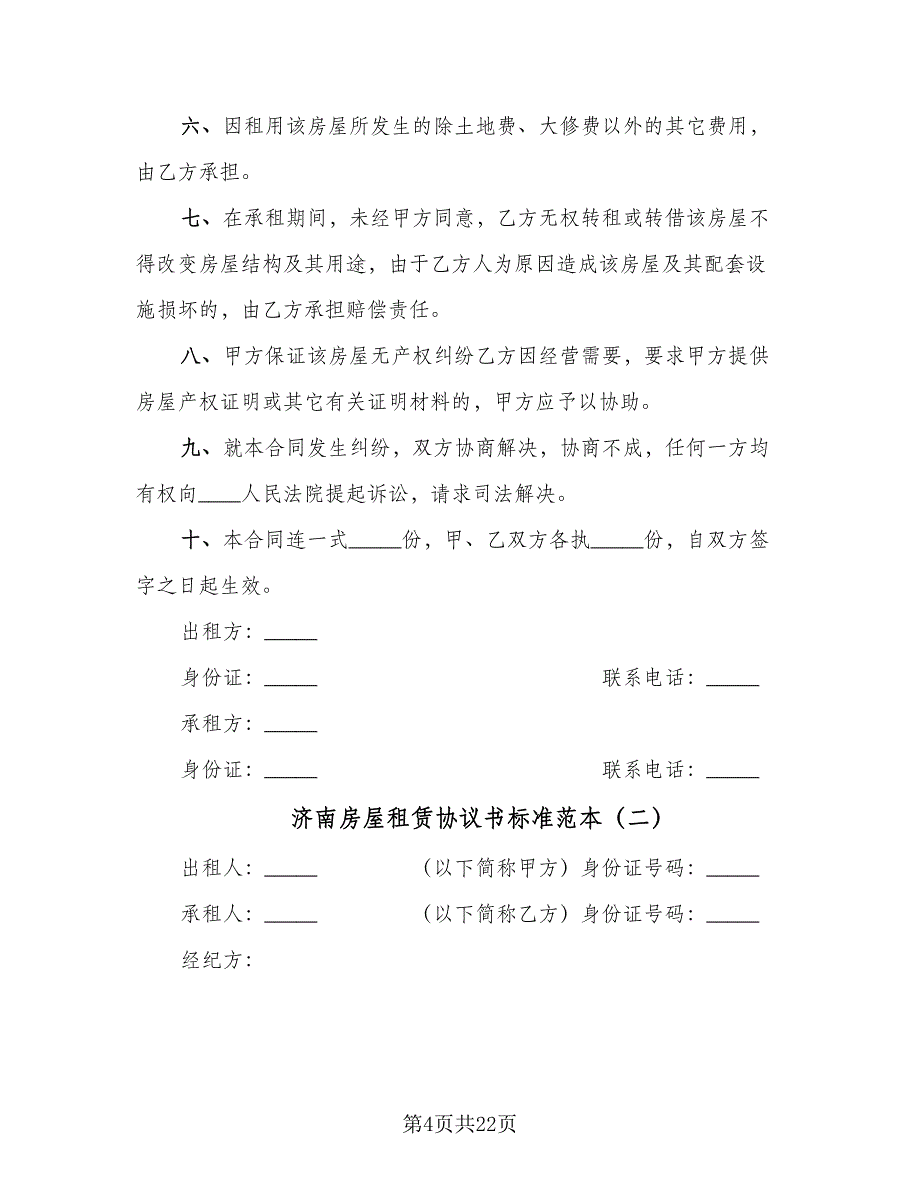 六、因租用该房屋所发生的除土地费、大修费以外的其它费用，
由乙方承担。
七、在承租期间，未经甲方同意，乙方无权转租或转借该房屋不
得改变房屋结构及其用途，由于乙方人为原因造成该房屋及其配套设
施损坏的，由乙方承担赔偿责任。
八、甲方保证该房屋无产权纠纷乙方因经营需要，要求甲方提供
房屋产权证明或其它有关证明材料的，甲方应予以协助。
九、就本合同发生纠纷，双方协商解决，协商不成，任何一方均
有权向____人民法院提起诉讼，请求司法解决。
十、本合同连一式_____份，甲、乙双方各执_____份，自双方签
字之日起生效。
出租方：_____
身份证：_____ 联系电话：_____
承租方：_____
身份证：_____ 联系电话：_____
济南房屋租赁协议书标准范本（二）
出租人：_____ （以下简称甲方）身份证号码：_____
承租人：_____ （以下简称乙方）身份证号码：_____
经纪方：
第4页共22页